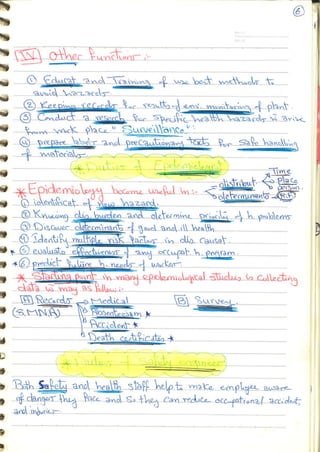 6
IV Other Functions :-
① Educat and Training of use best methods to
avoid hazards
② Keeping records for results of env. monitoring of plant.
③ Conduct a reserch for specific health hazards
from work place "Surveillance"
④ prepare labels and precautionary for safe handling
of materials.
Duties of Epidemiologist
Time
distribut place
person
determinants
* Epidemiology become useful in :-
① identificat. of new hazard.
② Knowing dis. burden and determine of h. problems
③ Discover determinants of good and ill health
④ Identify multiple risk factors in dis. causat.
* ⑤ evaluate effectiveness of any occupat. h. program
* ⑥ predict future h. needs of worker
* Starting point in many epidemiological studies is collecting
data may as follow :-
A Records Medical B Survey
(S.MNA) Absenteeism *
Accident *
Death certificates *
Duties of Safety engineer
Both Safety and health staff help to make employee aware
of danger they face and so they can reduce occupational accident,
and injuries